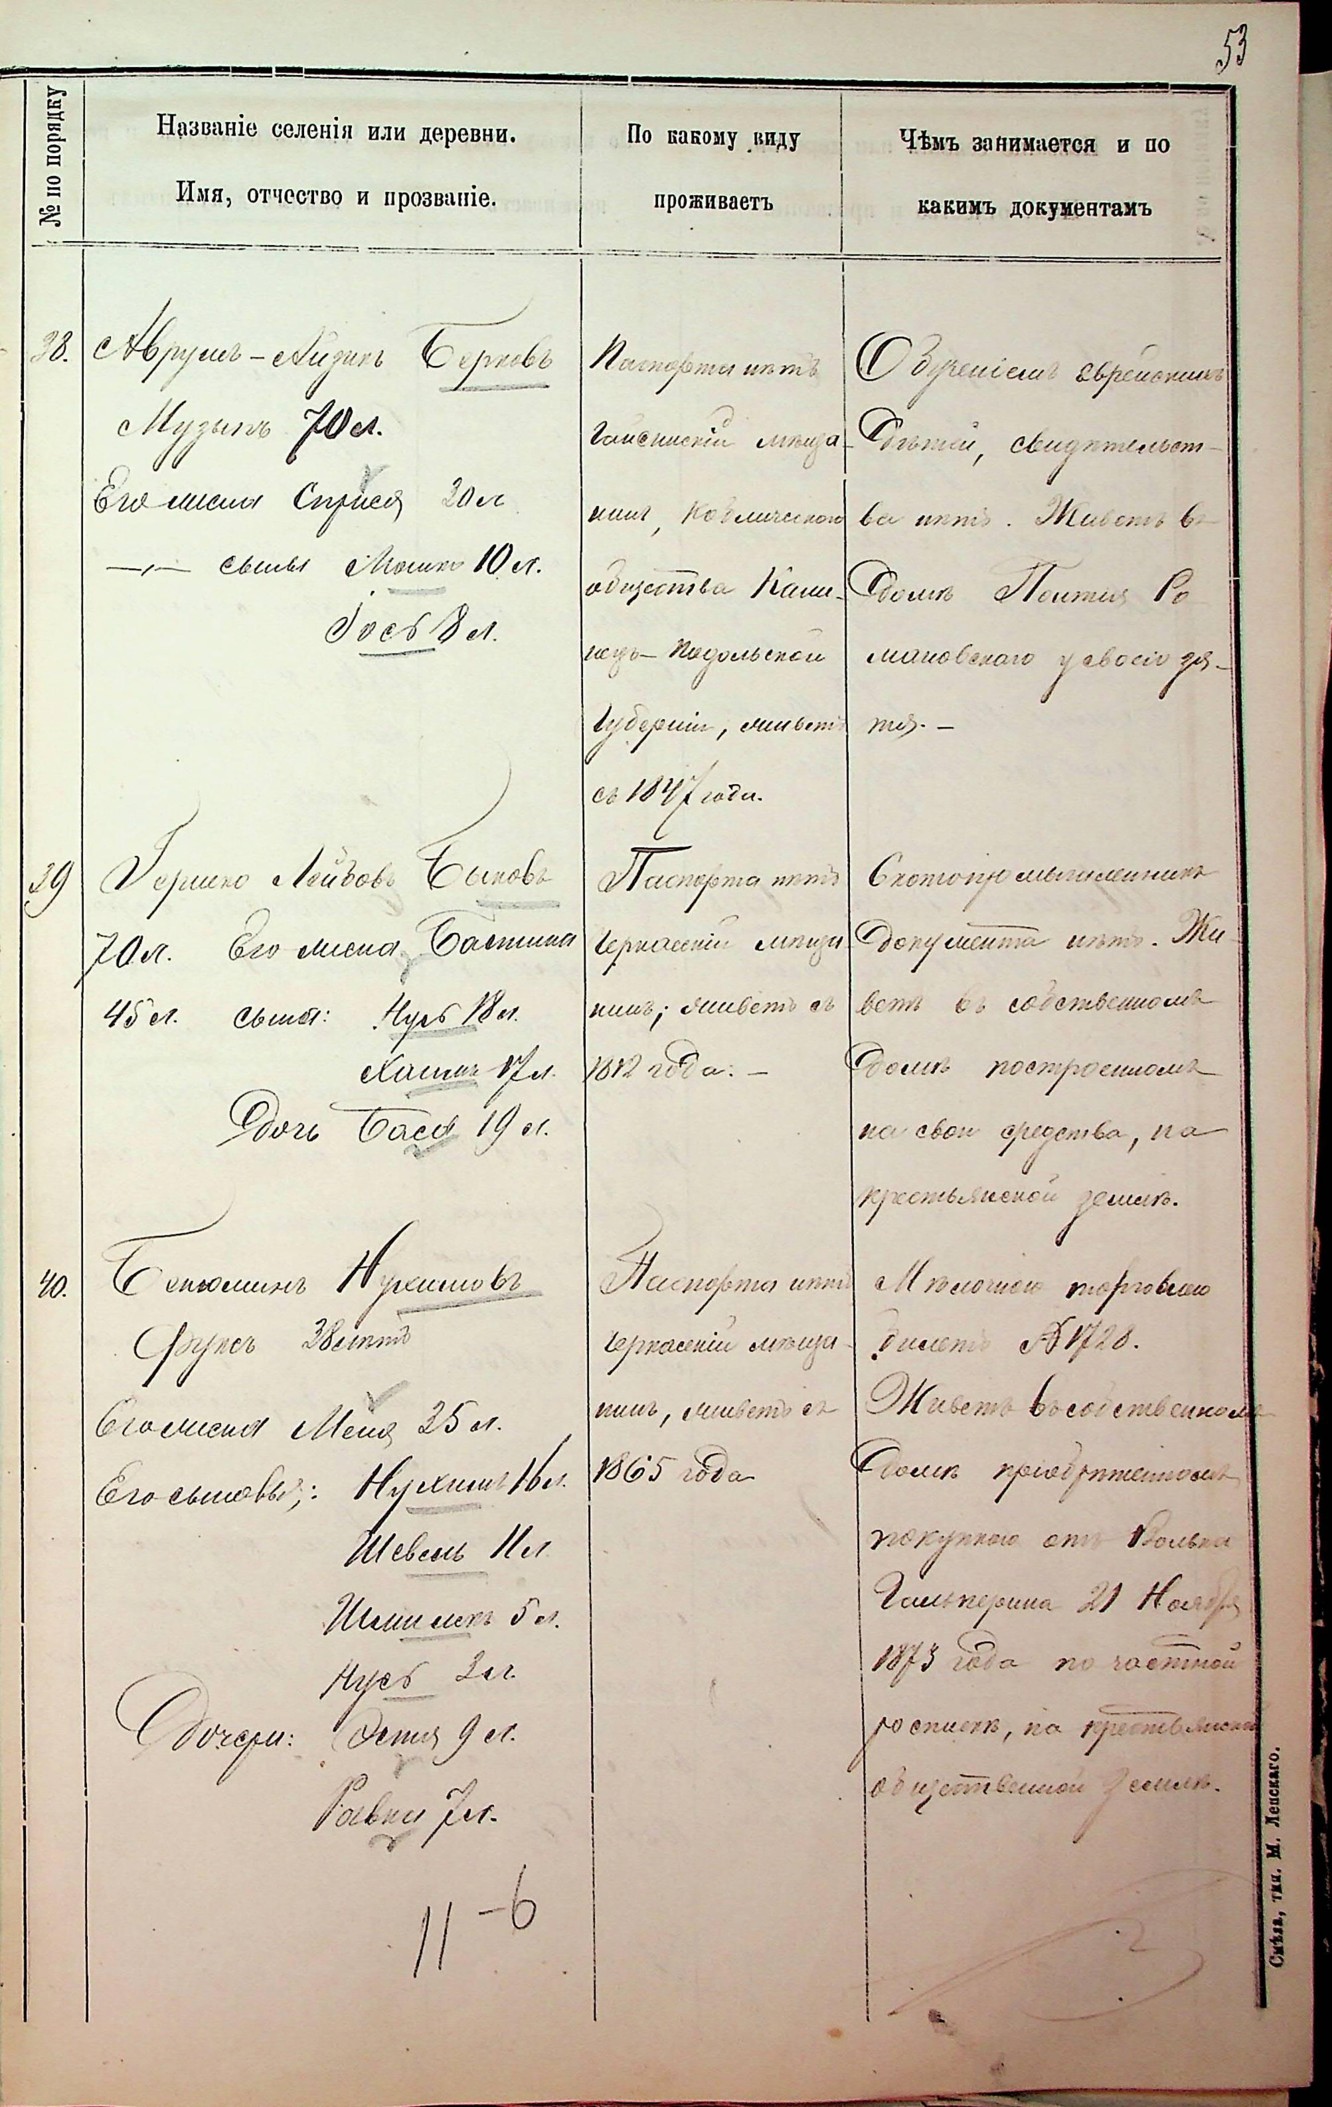 53
№ по порядку
Названіе селенія или деревни.
Имя, отчество и прозваніе.
По какому виду
проживаетъ
Чѣмъ занимается и по
какимъ документамъ
38.
Аврумъ-Айзикъ Берковъ
Музыкъ 70 л.
Его жена Сприся 30 л
—„— сынъ Мошко 10 л.
Іосъ 8 л.
Паспорта нѣтъ
Гайсинскій мѣща-
нинъ,
общества Каме-
нецъ-Подольской
Губерніи, живетъ
съ 1847 года.
Обученіемъ еврейскихъ
дѣтей, свидѣтельст-
ва нѣтъ. Живетъ въ
домѣ Ро
мановскаго у своего зя-
тя. —
39
Гершко Лейбовъ Быковъ
70 л. Его жена
45 л. сына: Нусъ 18 л.
17 л.
Дочь Бася 19 л.
Паспорта нѣтъ
Черкаскій мѣща
нинъ; живетъ съ
1812 года. —
Скотопромышленникъ
документа нѣтъ. Жи-
ветъ въ собственномъ
домѣ построенномъ
на свои средства, на
крестьянской землѣ.
40.
Бенюминъ Нухимовъ
Фуксъ 38 лѣтъ
Его жена Меня 35 л.
Его сыновья: Нухимъ 16 л.
Шевель 11 л
Шмилекъ 5 л.
Нусъ 3 л.
Дочери: Эстя 9 л.
Равки 7 л.
11-6
Паспорта нѣтъ
Черкаскій мѣща-
нинъ, живетъ съ
1865 года
Мѣлочною торговлею
билетъ № 1728.
Живетъ въ собственномъ
домѣ пріобрѣтенномъ
покупкою отъ Волька
Гальперина 21 Ноября
1873 года по частной
роспискѣ, на крестьянской
общественной землѣ.
Смѣла, тип. М. Ленскаго.